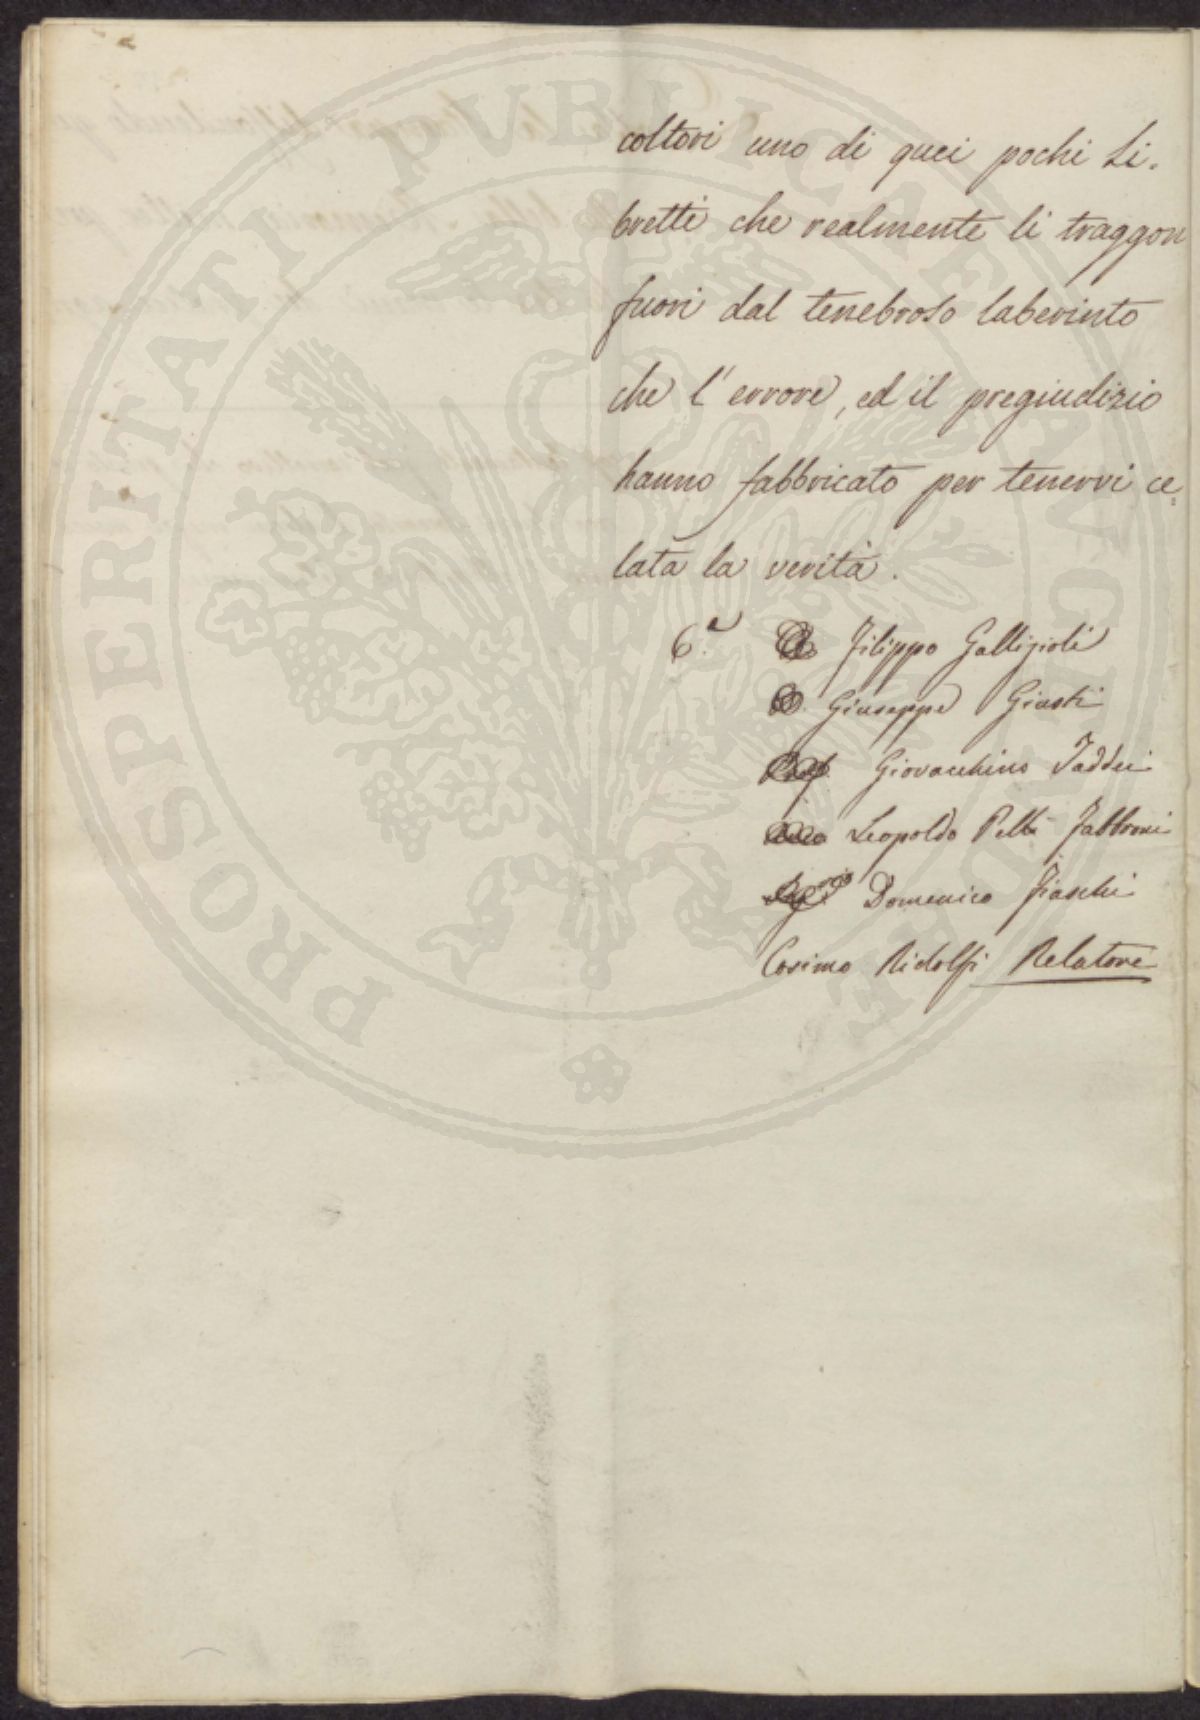 coltori uno di quei pochi Li-
bretti che realmente li traggon
fuori dal tenebroso laberinto
che l'errore, ed il pregiudizio
hanno fabbricato per tenervi ce-
lata la verità.
Filippo Gallizioli
Giuseppe Giusti
Giovacchino Taddei
Leopoldo Pelli Fabbroni
Domenico Fiaschi
Cosimo Ridolfi Relatore
PROSPERITATI PUBLICAE AUGENDAE